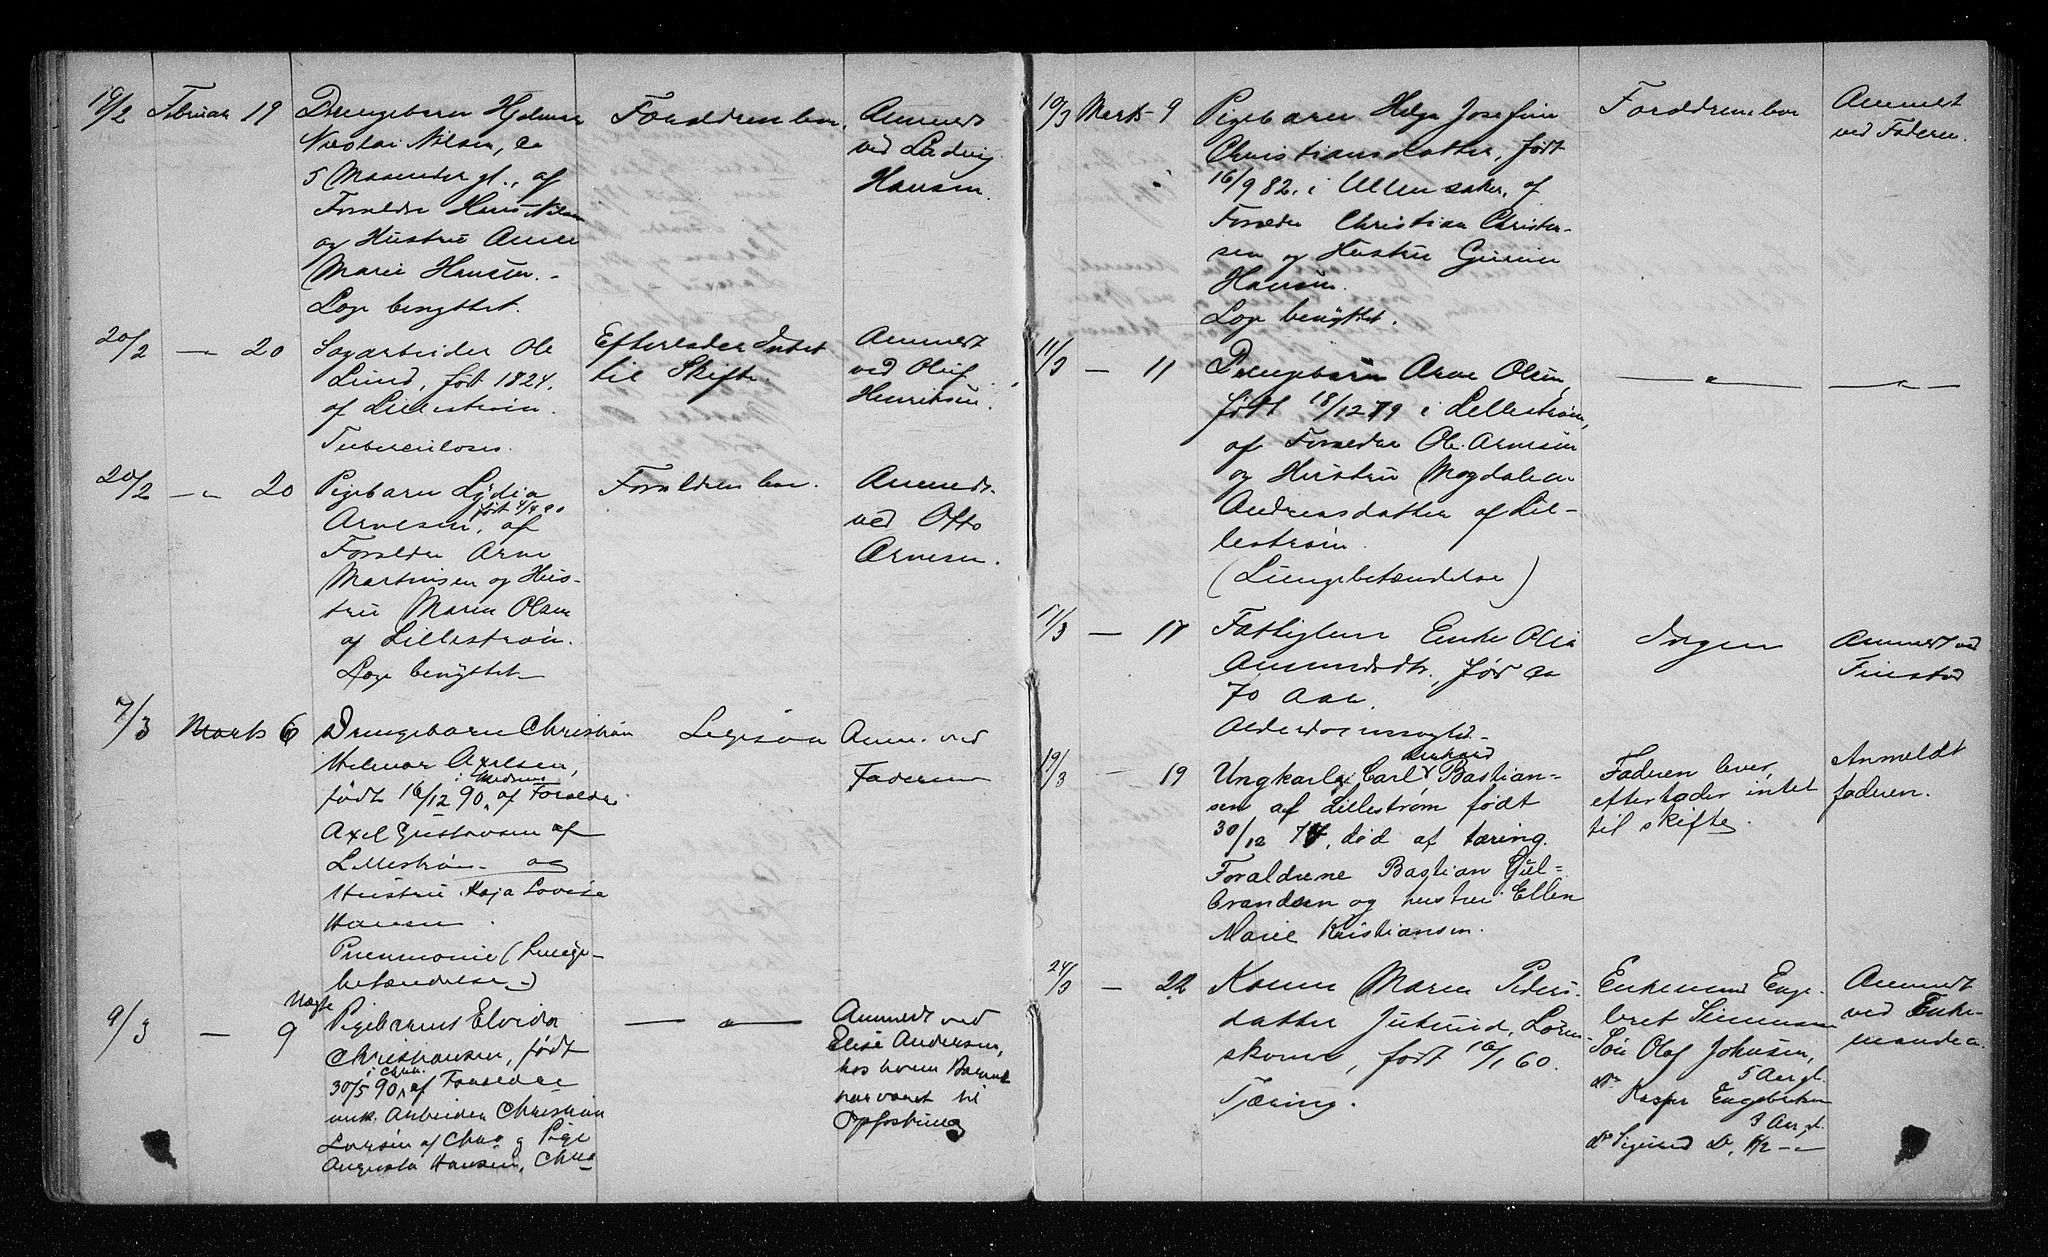 19/2 Februar 19 Drengebarn Hjalmar Forældrene lever. Anmeldt
Nicolai Nilsen, ca ved Ludvig
5 Maaneder gl., af Hansen.
Forældre Hans Nilsen
og Hustru Anne
Marie Hansen. -
Læge benyttet.
20/2 — " — 20 Sagarbeider Ole Efterlader Intet Anmeldt
Lund, født 1824. til Skifte. ved Oluf
af Lillestrøm. Henriksen.
Tuberculoses.
20/2 — " — 20 Pigebarn Lydia Forældrene lever. Anmeldt
født 4/4 90
Arnesen, af ved Otto
Forældre Arne Arnesen.
Martinsen og Hus-
tru Maren Olsen
af Lillestrøm.
Læge benyttet
7/3 Marts 6 Drengebarn Christian Ligesaa Anm. ved
Helmar Axelsen, Faderen
født 16/12 90, af Forældre
Axel Gustavsen af
Lillestrøm og
Hustru Kaja Lovise
Hansen.
Pneumonie (Lunge-
betændelse)
9/3 — 9 Uægte Pigebarnet Elvida — " — Anmeldt ved
Christiansen, født Elise Andersen,
i Chra.
30/5 90, af Forældre hos hvem Barnet
unk. Arbeider Christian har været til
Larsen af Chra og Pige Opfostring
Augusta Hansen, Chra
10/3 Marts 9 Pigebarn Helga Josefine Forældrene lever Anmeldt
Christiansdatter, født ved Faderen.
16/9 82. i Ullensaker, af
Forældre Christian Christen-
sen og Hustru Gurine
Hansen.
Læge benyttet.
11/3 — 11 Drengebarn Arne Olsen, — " — — " —
født 18/12 79 i Lillestrøm,
af Forældre Ole Arnesen
og Hustru Magdalena
Andreasdatter af Lil-
lestrøm.
(Lungebetændelse)
17/3 — 17 Fattiglem Enke Olia Ingen Anmeldt ved
Amundsdtr., født ca
70 Aar.
Alderdomssvaghed.
19/3 — 19 Ungkarl Carl Bastian- Faderen lever, Anmeldt
sen af Lillestrøm født efterlader intet faderen.
30/12 74, død af tæring. til skifte.
Forældrene Bastian Gul-
brandsen og hustru Ellen
Marie Kristiansen.
24/3 — 22 Konen Maren Peders- Enkemand Enge- Anmeldt
datter Julsrud, Løren- bret Simensen ved Enke-
skoven, født 16/1 60. Søn Olaf Johnsen, manden
5 Aar gl.
Tæring. do Kasper Engebretsen
3 Aar gl.
do Sigurd Do, 1/2 — " —